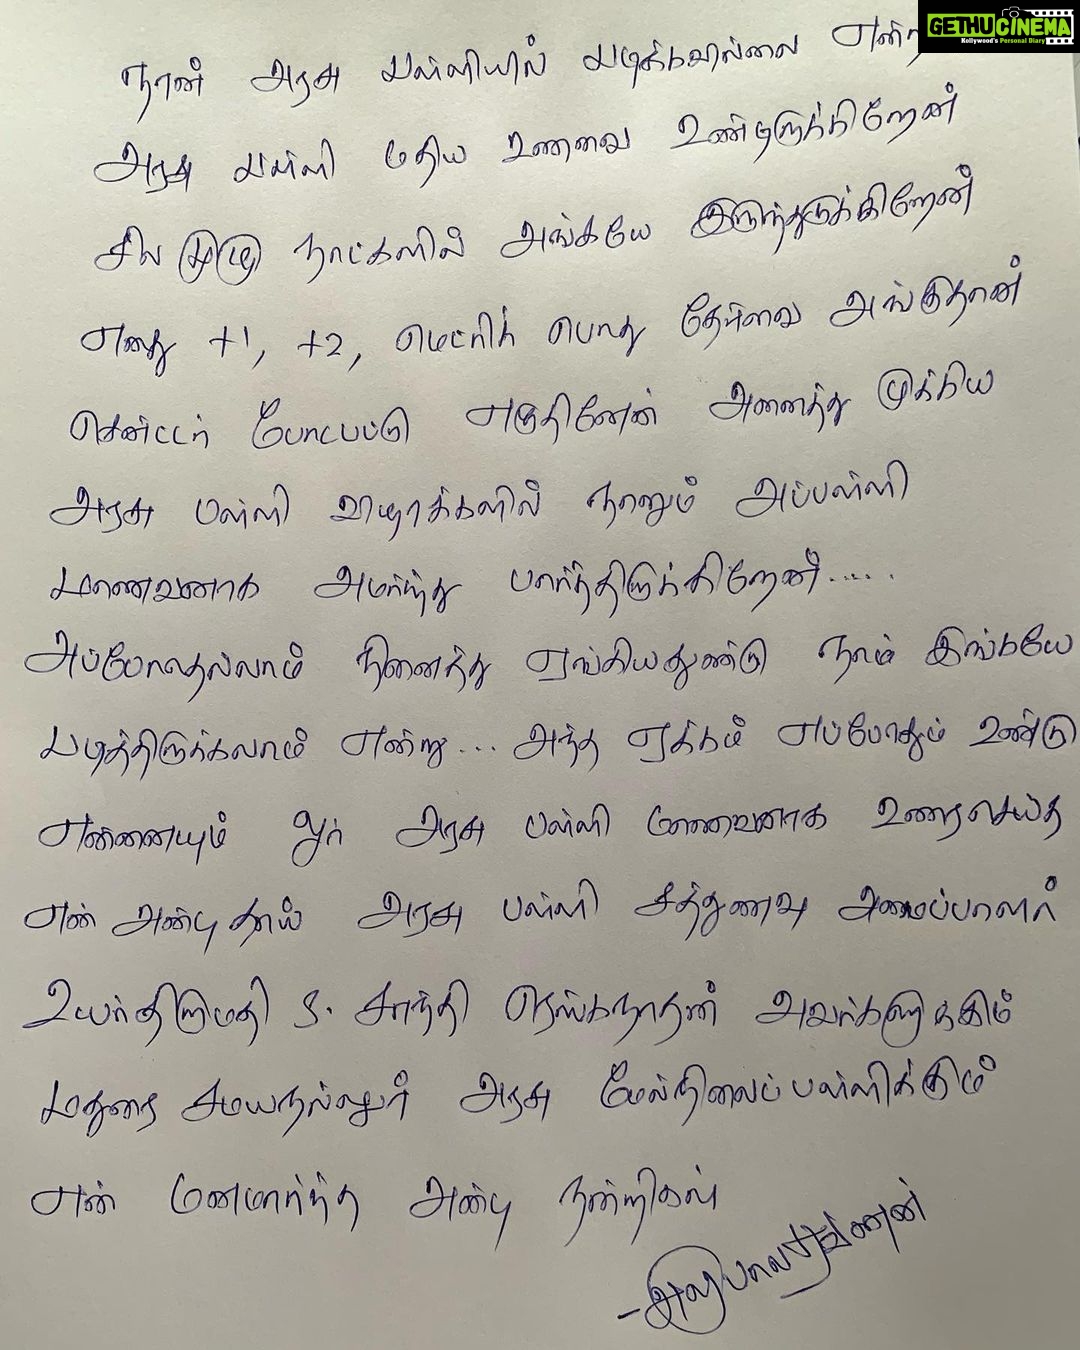 GETHU CINEMA
Kollywood's Personal Diary
நான் அரசு பள்ளியில் படிக்கவில்லை
அரசு பள்ளி மதிய உணவை உண்டிருக்கிறேன்
சில முழு நாட்களில் அங்கயே இருந்துருக்கிறேன்
எனது +1, +2, மெட்ரிக் பொது தேர்வை அங்குதான்
சென்ட்டர் போடப்பட்டு எழுதினேன் அனைத்து முக்கிய
அரசு பள்ளி விழாக்களில் நானும் அப்பள்ளி
மாணவனாக அமர்ந்து பார்த்திருக்கிறேன்.....
அப்போதெல்லாம் நினைத்து ஏங்கியதுண்டு நாம் இங்கயே
படித்திருக்கலாம் என்று... அந்த ஏக்கம் எப்போதும் உண்டு
என்னையும் ஓர் அரசு பள்ளி மாணவனாக உணரசெய்த
என் அன்பு தாய் அரசு பள்ளி சத்துணவு அமைப்பாளர்
உயர்திருமதி S. சாந்தி ரெங்கநாதன் அவர்களுக்கும்
மதுரை சமயநல்லூர் அரசு மேல்நிலைப்பள்ளிக்கும்
என் மனமார்ந்த அன்பு நன்றிகள்